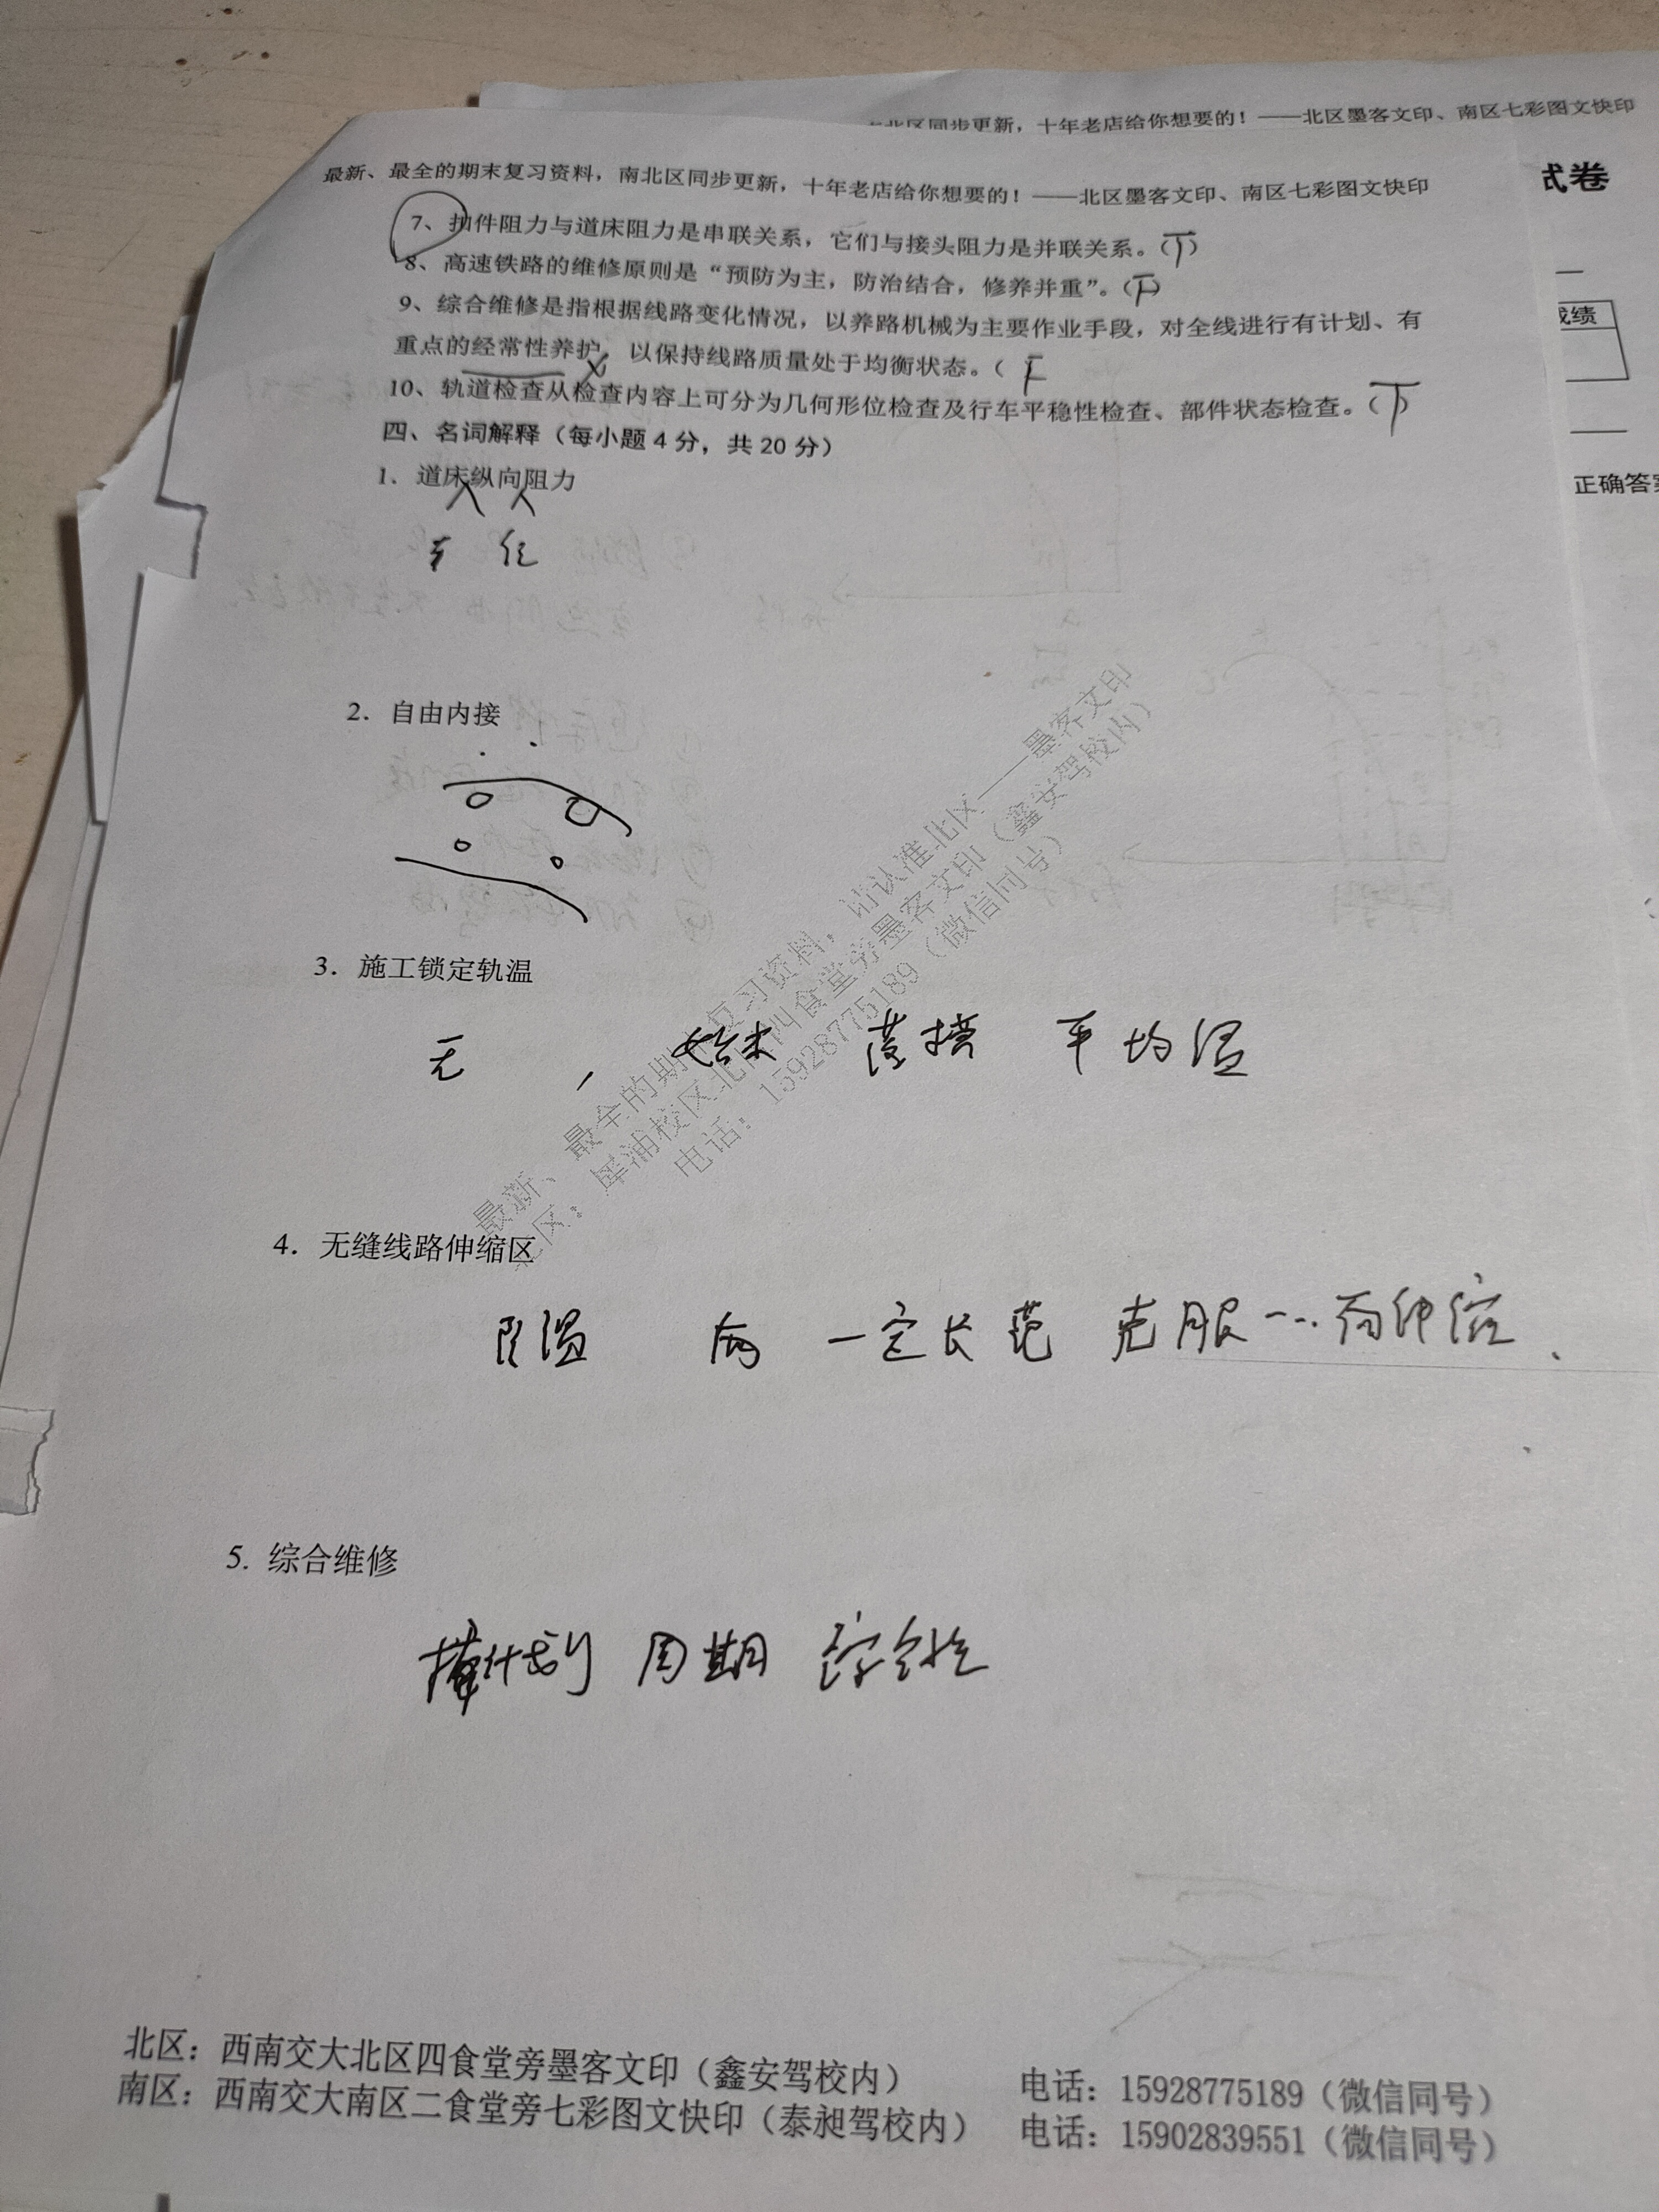 北区同步更新，十年老店给你想要的！——北区墨客文印、南区七彩图文快印
试卷
成绩
正确答案
最新、最全的期末复习资料，南北区同步更新，十年老店给你想要的！——北区墨客文印、南区七彩图文快印
7、扣件阻力与道床阻力是串联关系，它们与接头阻力是并联关系。（T）
8、高速铁路的维修原则是“预防为主，防治结合，修养并重”。（F）
9、综合维修是指根据线路变化情况，以养路机械为主要作业手段，对全线进行有计划、有
重点的经常性养护，以保持线路质量处于均衡状态。（F
10、轨道检查从检查内容上可分为几何形位检查及行车平稳性检查、部件状态检查。（T）
四、名词解释（每小题 4 分，共 20 分）
1．道床纵向阻力
2．自由内接
3．施工锁定轨温
无 ， 始末 落槽 平均温
4．无缝线路伸缩区
降温 两 一定长范 克服…而伸缩
5. 综合维修
计划 周期 综合性
最新、最全的期末复习资料，请认准北区——墨客文印
北区：犀浦校区北区四食堂旁墨客文印（鑫安驾校内）
电话：15928775189（微信同号）
北区：西南交大北区四食堂旁墨客文印（鑫安驾校内） 电话：15928775189（微信同号）
南区：西南交大南区二食堂旁七彩图文快印（泰昶驾校内） 电话：15902839551（微信同号）